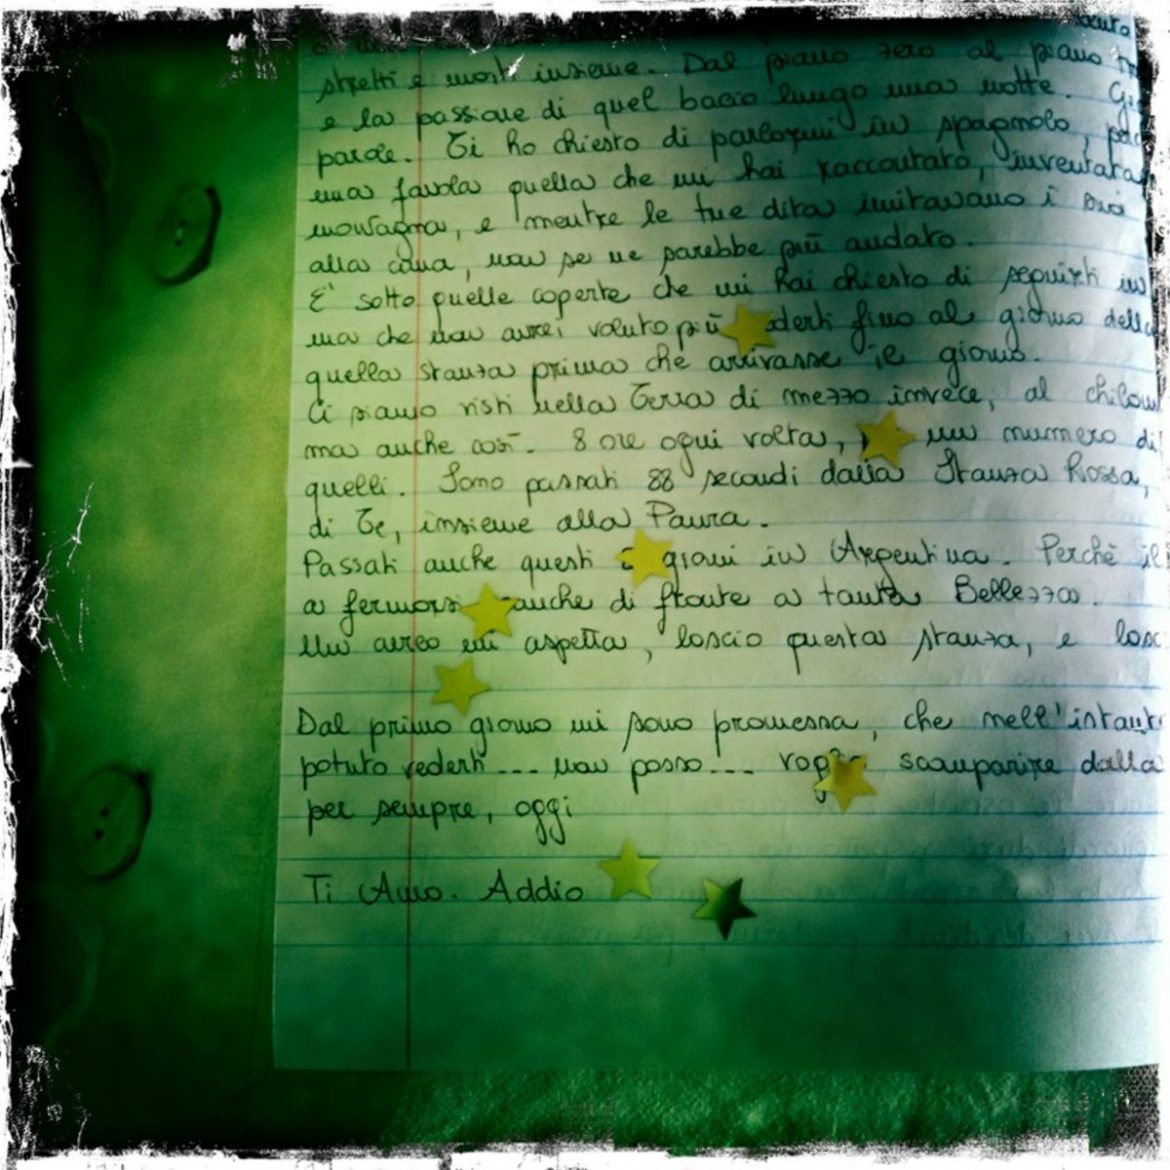 stretti e morti insieme. Dal piano zero al piano
e la passione di quel bacio lungo una notte.
parole. Ti ho chiesto di parlarmi in spagnolo,
una favola quella che mi hai raccontato, inventata
montagna, e mentre le tue dita imitavano i
alla cava, non se ne sarebbe più andato.
E' sotto quelle coperte che mi hai chiesto di seguirti in
ma che non avrei voluto più derti fino al giorno della
quella stanza prima che arrivasse il giorno.
Ci siamo visti nella Terra di mezzo invece, al
ma anche così. 8 ore ogni volta, un numero di
quelli. Sono passati 88 secondi dalla Stanza Rossa,
di Te, insieme alla Paura.
Passati anche questi giorni in Argentina. Perchè il
a fermarsi anche di fronte a tanta Bellezza.
Un aereo mi aspetta, lascio questa stanza, e
Dal primo giorno mi sono promessa, che nell'istante
potuto vederti... non posso... scomparire dalla
per sempre, oggi
Ti Amo. Addio